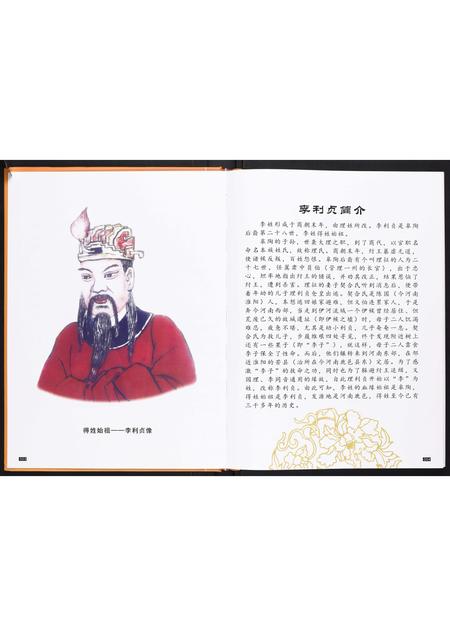 得姓始祖——李利贞像
李利贞简介
李姓形成于商朝末年，由理姓所改。李利贞是皋陶
后裔第二十八世，李姓得姓始祖。
皋陶的子孙，世袭大理之职，到了商代，以官职名
命名本族姓氏，故称理氏。商朝末年，纣王暴虐无道，
使诸候反叛，百姓怨恨。皋陶后裔有个叫理征的人为二
十七世，任翼隶中吴伯（管理一州的长官），出于忠
心，坦率地指出纣王的错误，并劝其改正，结果惹恼了
纣王，遭到杀害。理征的妻子契合氏听到消息后，便带
着年幼的儿子理利贞仓皇出逃。契合氏是陈国（今河南
淮阳）人，本想逃回娘家避难，但又怕连累家人，于是
奔今河南西部，当走到伊河流域一个伊候曾经居住，但
荒废已久的故城遗址（即伊候之墟）时，母子二人饥渴
难忍，疲惫不堪，尤其是幼小利贞，几乎奄奄一息。契合
氏为救儿子，步履艰难四处寻觅，终于发现附近树上
还有一些果子（即“李子”），就这样，母子二人靠食
李子保全了性命。而后，他们辗转来到河南东部，在邻
近淮阳的苦县（治所在今河南鹿邑县东）定居。为了感
激“李子”的救命之功，同时也为了躲避纣王追缉，又
因理、李同音通用的缘故，自此理利贞开始以“李”为
姓，改称李利贞。由此可知，李姓的血缘始祖是皋陶，
得姓始祖是李利贞，发源地是河南鹿邑，得姓至今已有
三千多年的历史。